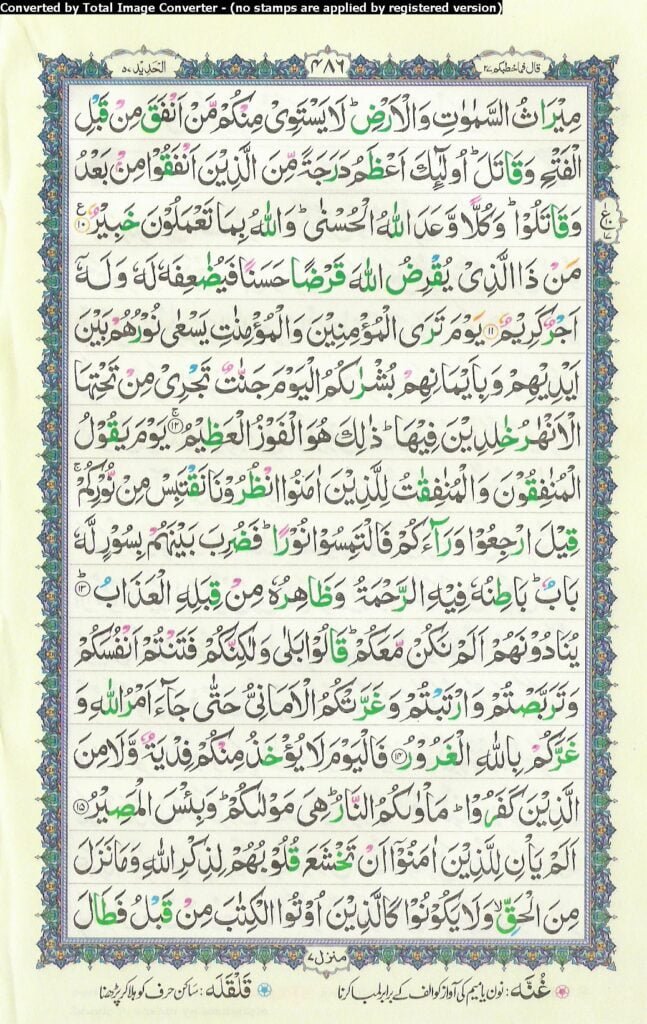 Converted by Total Image Converter - (no stamps are applied by registered version)
قال فما خطبكم ٢٧
٤٨٦
الحديد ٥٧
مِيْرَاثُ السَّمٰوٰتِ وَالْاَرْضِ ؕ لَا يَسْتَوِىْ مِنْكُمْ مَّنْ اَنْفَقَ مِنْ قَبْلِ
الْفَتْحِ وَقَاتَلَ ؕ اُولٰٓئِكَ اَعْظَمُ دَرَجَةً مِّنَ الَّذِيْنَ اَنْفَقُوْا مِنْۢ بَعْدُ
وَقَاتَلُوْا ؕ وَكُلًّا وَّعَدَ اللّٰهُ الْحُسْنٰى ؕ وَاللّٰهُ بِمَا تَعْمَلُوْنَ خَبِيْرٌ ﴿۱۰﴾
مَنْ ذَا الَّذِىْ يُقْرِضُ اللّٰهَ قَرْضًا حَسَنًا فَيُضٰعِفَهٗ لَهٗ وَلَهٗۤ
اَجْرٌ كَرِيْمٌ ﴿۱۱﴾ يَوْمَ تَرَى الْمُؤْمِنِيْنَ وَالْمُؤْمِنٰتِ يَسْعٰى نُوْرُهُمْ بَيْنَ
اَيْدِيْهِمْ وَبِاَيْمَانِهِمْ بُشْرٰىكُمُ الْيَوْمَ جَنّٰتٌ تَجْرِىْ مِنْ تَحْتِهَا
الْاَنْهٰرُ خٰلِدِيْنَ فِيْهَا ؕ ذٰلِكَ هُوَ الْفَوْزُ الْعَظِيْمُ ﴿۱۲﴾ يَوْمَ يَقُوْلُ
الْمُنٰفِقُوْنَ وَالْمُنٰفِقٰتُ لِلَّذِيْنَ اٰمَنُوا انْظُرُوْنَا نَقْتَبِسْ مِنْ نُّوْرِكُمْ ۚ
قِيْلَ ارْجِعُوْا وَرَآءَكُمْ فَالْتَمِسُوْا نُوْرًا ؕ فَضُرِبَ بَيْنَهُمْ بِسُوْرٍ لَّهٗ
بَابٌ ؕ بَاطِنُهٗ فِيْهِ الرَّحْمَةُ وَظَاهِرُهٗ مِنْ قِبَلِهِ الْعَذَابُ ﴿۱۳﴾
يُنَادُوْنَهُمْ اَلَمْ نَكُنْ مَّعَكُمْ ؕ قَالُوْا بَلٰى وَلٰكِنَّكُمْ فَتَنْتُمْ اَنْفُسَكُمْ
وَتَرَبَّصْتُمْ وَارْتَبْتُمْ وَغَرَّتْكُمُ الْاَمَانِىُّ حَتّٰى جَآءَ اَمْرُ اللّٰهِ وَ
غَرَّكُمْ بِاللّٰهِ الْغَرُوْرُ ﴿۱۴﴾ فَالْيَوْمَ لَا يُؤْخَذُ مِنْكُمْ فِدْيَةٌ وَّلَا مِنَ
الَّذِيْنَ كَفَرُوْا ؕ مَاْوٰىكُمُ النَّارُ ؕ هِىَ مَوْلٰىكُمْ ؕ وَبِئْسَ الْمَصِيْرُ ﴿۱۵﴾
اَلَمْ يَاْنِ لِلَّذِيْنَ اٰمَنُوْۤا اَنْ تَخْشَعَ قُلُوْبُهُمْ لِذِكْرِ اللّٰهِ وَمَا نَزَلَ
مِنَ الْحَقِّ ۙ وَلَا يَكُوْنُوْا كَالَّذِيْنَ اُوْتُوا الْكِتٰبَ مِنْ قَبْلُ فَطَالَ
منزل ٧
غُنَّه: نون یا میم کی آواز کو الف کے برابر لمبا کرنا
قَلْقَلَه: ساکن حرف کو ہلا کر پڑھنا